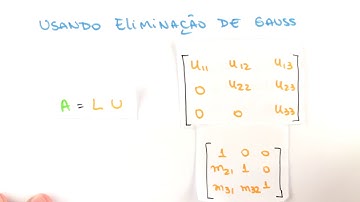 USANDO ELIMINAÇÃO DE GAUSS
A = L U
u11 u12 u13
0 u22 u23
0 0 u33
1 0 0
m21 1 0
m31 m32 1